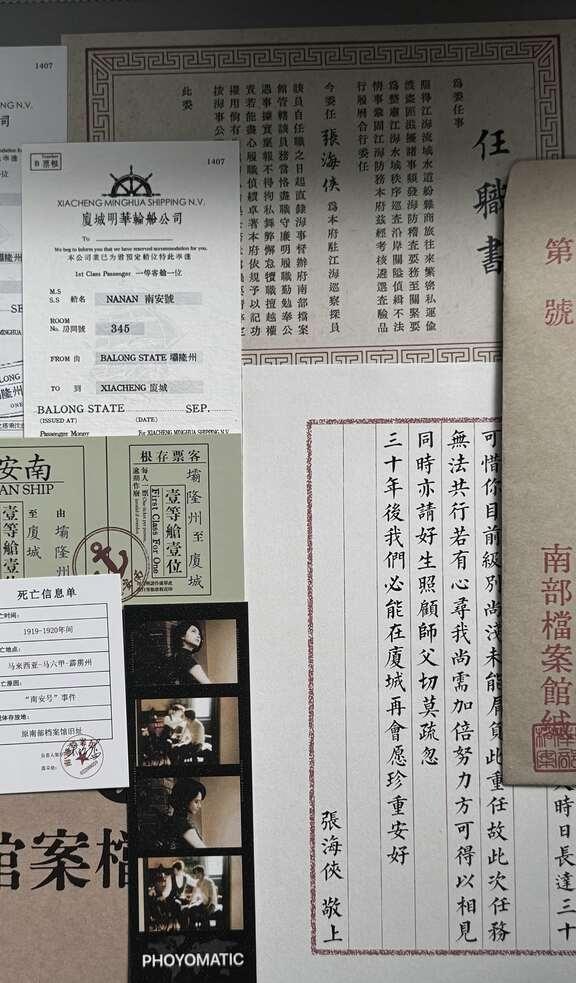 1407
NG N.V.
司
1407
B 票根
XIACHENG MINGHUA SHIPPING N.V.
廈城明華輪船公司
To
We beg to inform you that we have reserved accommodation for you.
本公司業已為君預定艙位特此奉達
1st Class Passenger 一等客艙一位
M.S
S.S 船名 NANAN 南安號
ROOM
No. 房間號 345
FROM 由 BALONG STATE 壩隆州
TO 到 XIACHENG 廈城
BALONG STATE SEP....
(ISSUED AT) (DATE)
Passenger Money For XIACHENG MINGHUA SHIPPING N.V.
任職書
為委任事
照得江海流域水道紛雜商旅往來繁密私運偷
渡盜匪滋擾諸事頻發海防稽查要務至關緊要
為整肅江海水域秩序巡查沿岸關隘偵緝不法
情事鞏固江海防務本府茲經考核遴選查驗品
行履曆合行委任
今委任 張海俠 為本府駐江海巡察探員
該員自任職之日起直隸海事督辦府南部檔案
館管轄該員務當恪盡職守廉明履職勤勉奉公
遇事據實稟報不得徇私舞弊懈怠職責擅越權
責若能盡心履職偵績卓著本府依規予以記功
擢用倘有
按海事公
此委
第 號
南部檔案館緘
南安
AN SHIP
由 壩隆州
至 廈城
壹等艙壹位
客票存根
壩隆州 至 廈城
壹等艙壹位
First Class For One
每人一票
逾期作廢
死亡信息单
亡时间:
1919-1920年间
亡地点:
马来西亚-马六甲-霹雳州
亡原因:
“南安号”事件
体存放地:
原南部档案馆旧址
館案檔
PHOYOMATIC
時日長達三十
可惜你目前級別尚淺未能肩負此重任故此次任務
無法共行若有心尋我尚需加倍努力方可得以相見
同時亦請好生照顧師父切莫疏忽
三十年後我們必能在廈城再會愿珍重安好
張海俠 敬上